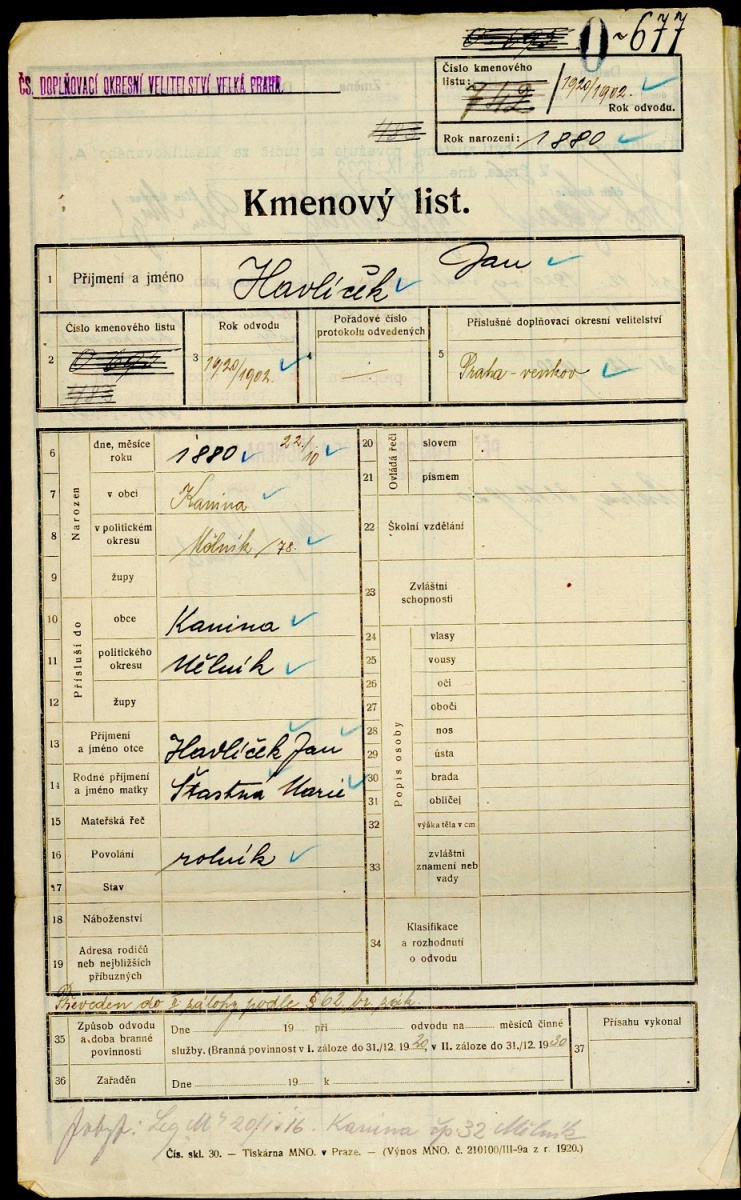 0~677
ČS. DOPLŇOVACÍ OKRESNÍ VELITELSTVÍ VELKÁ PRAHA.
Číslo kmenového listu: 742 / 1920/1902. Rok odvodu.
483
Rok narození: 1880
Kmenový list.
1 Příjmení a jméno Havlíček Jan
2 Číslo kmenového listu 0 695 483
3 Rok odvodu 1920/1902.
4 Pořadové číslo protokolu odvedených —
5 Příslušné doplňovací okresní velitelství Praha-venkov
Narozen
6 dne, měsíce roku 1880 22/10
7 v obci Kanina
8 v politickém okresu Mělník /78.
9 župy
Přísluší do
10 obce Kanina
11 politického okresu Mělník
12 župy
13 Příjmení a jméno otce Havlíček Jan
14 Rodné příjmení a jméno matky Šťastná Marie
15 Mateřská řeč
16 Povolání rolník
17 Stav
18 Náboženství
19 Adresa rodičů neb nejbližších příbuzných
Ovládá řeči
20 slovem
21 písmem
22 Školní vzdělání
23 Zvláštní schopnosti
Popis osoby
24 vlasy
25 vousy
26 oči
27 obočí
28 nos
29 ústa
30 brada
31 obličej
32 výška těla v cm
33 zvláštní znamení neb vady
34 Klasifikace a rozhodnutí o odvodu
Převeden do II zálohy podle § 62 br. zák.
35 Způsob odvodu a doba branné povinnosti Dne 19 při odvodu na měsíců činné
služby. (Branná povinnost v I. záloze do 31./12. 1920, v II. záloze do 31./12. 1930
36 Zařaděn Dne 19 k
37 Přísahu vykonal
Kanina čp. 32 Mělník
Čís. skl. 30. — Tiskárna MNO. v Praze. — (Výnos MNO. č. 210100/III-9a z r. 1920.)